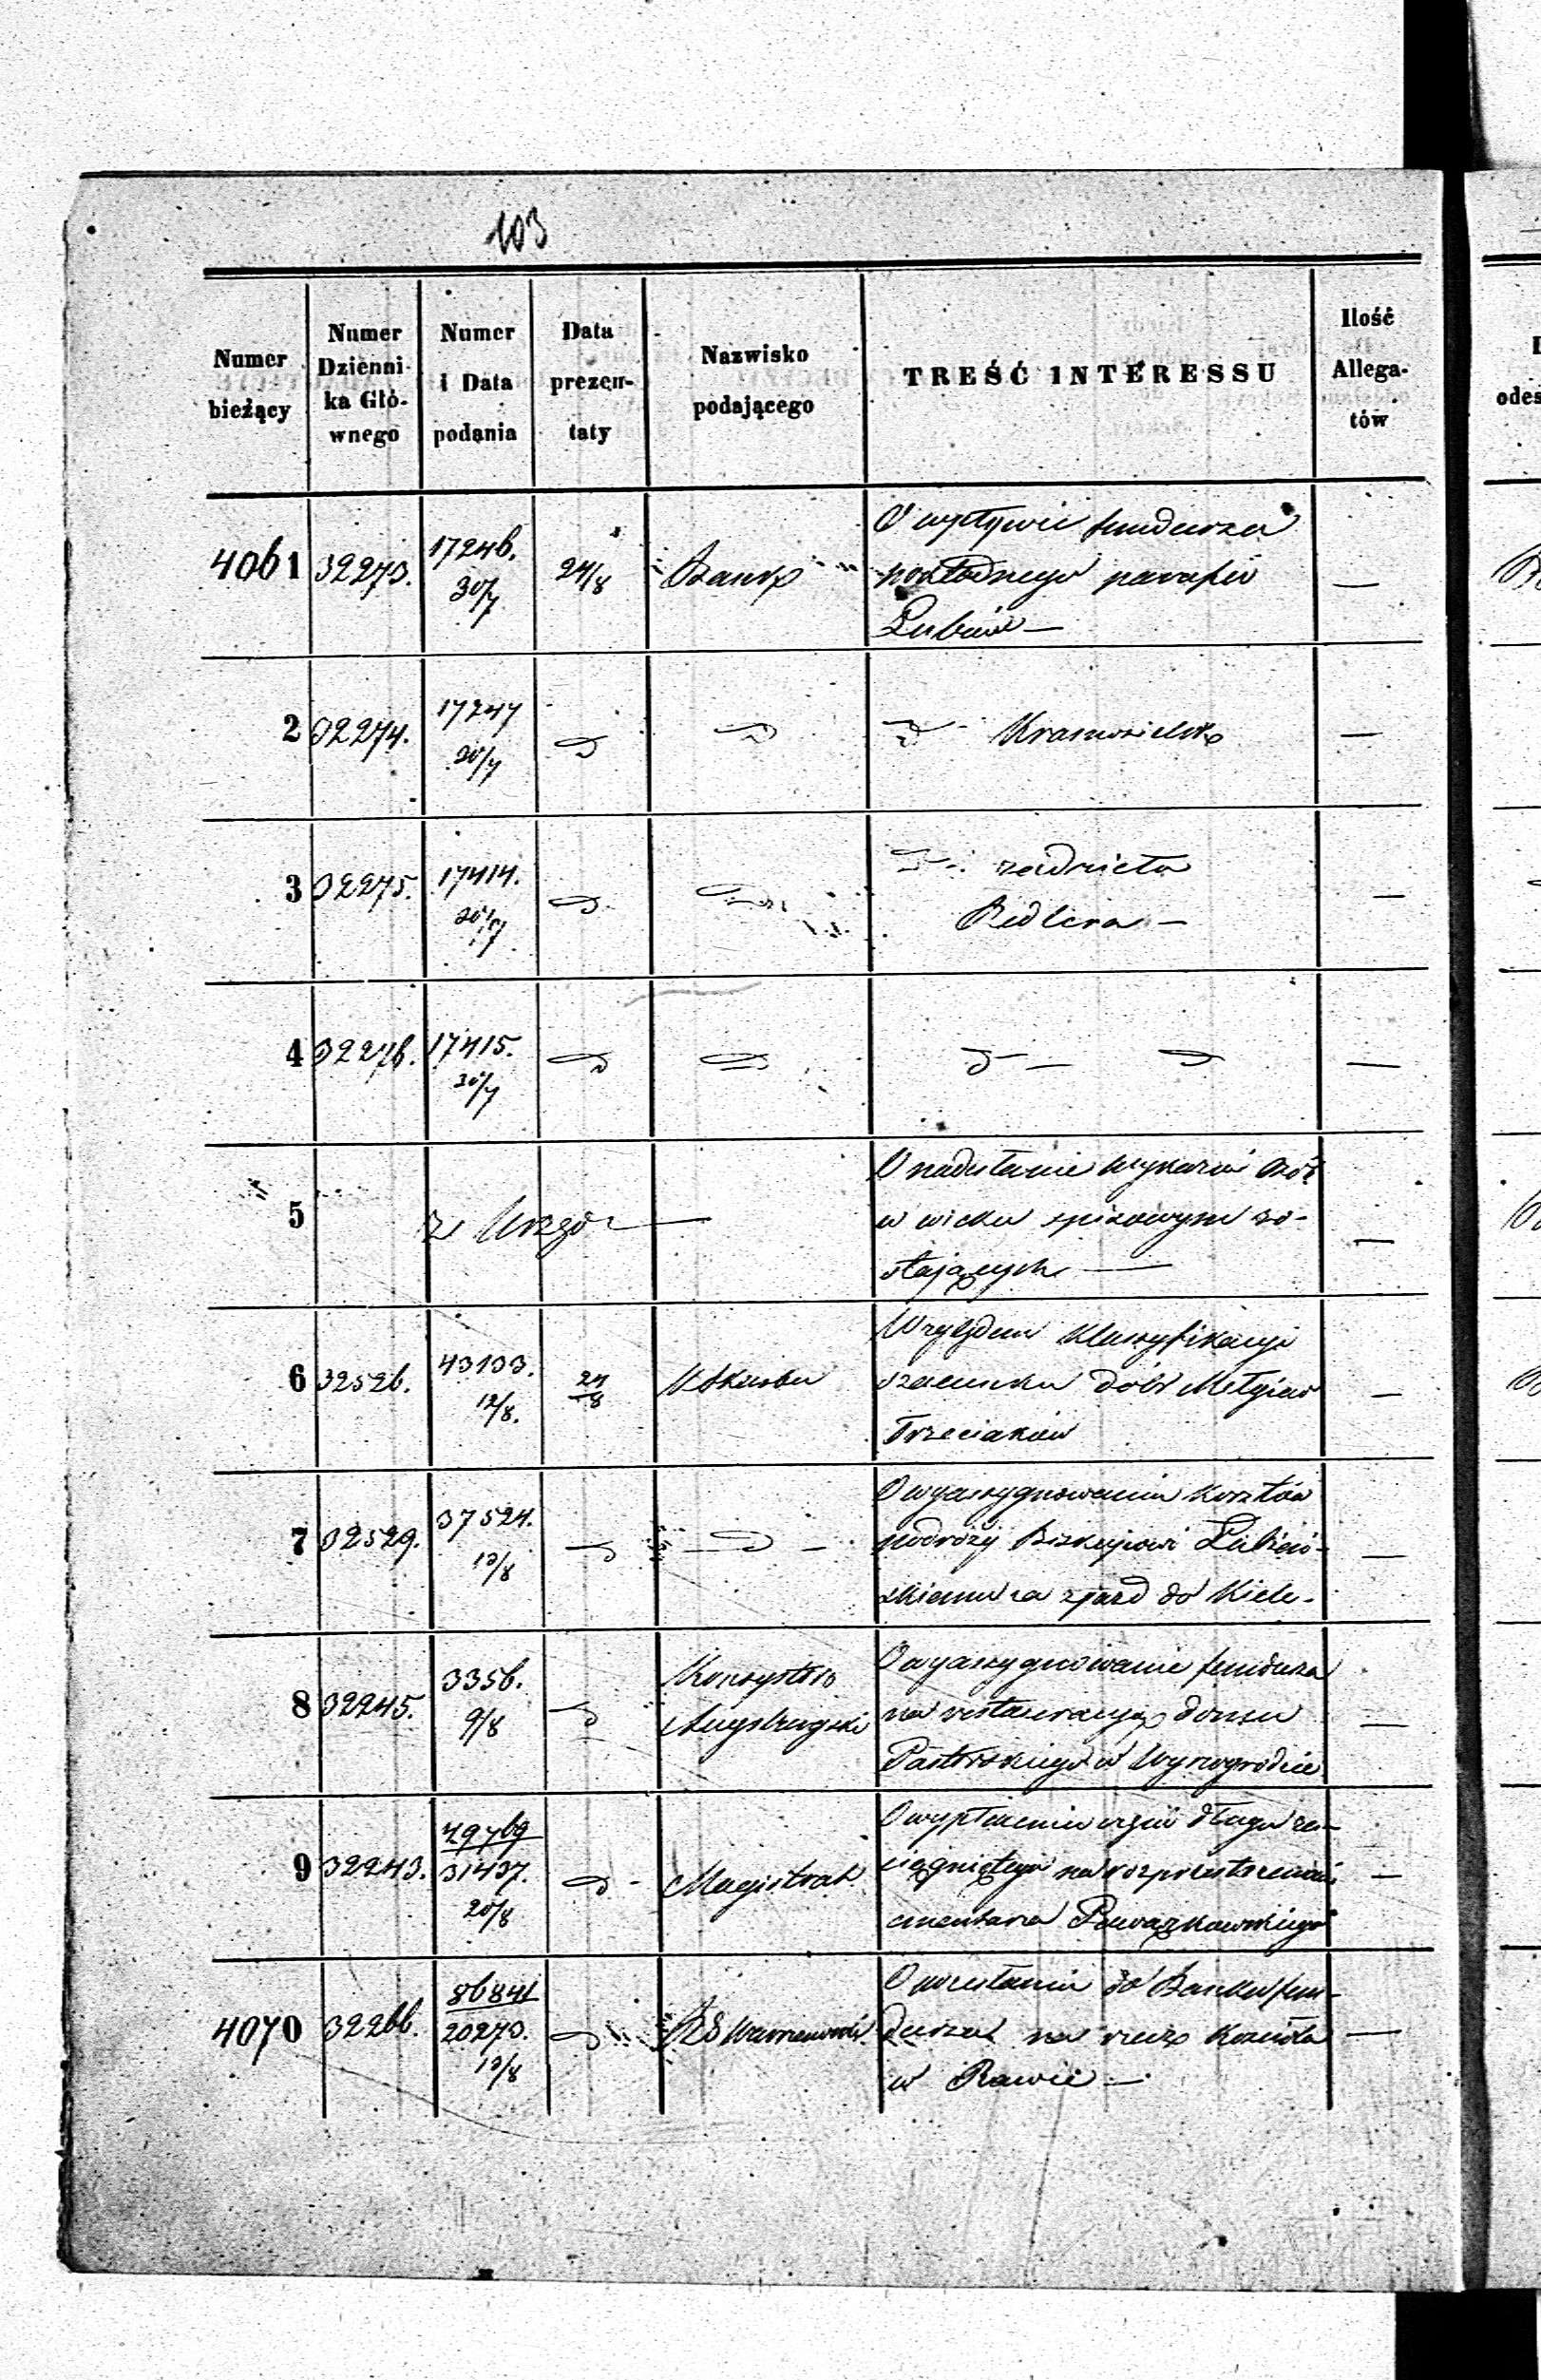 103
Numer bieżący
Numer Dzienni- ka Głó- wnego
Numer i Data podania
Data prezen- taty
Nazwisko podającego
TREŚĆ INTERESSU
Ilość Allega- tów
4061 32273. 17246. 30/7 24/8 Bank
O wpływie funduszu
pokładnego parafii
Lubin —
2 32274. 17247 20/7 d d d Krasnosielsk —
3 32275. 17414. 20/7 d d d
Redlera —
4 32276. 17415. 20/7 d d d — d —
5 z Urzędu —
O nadesłanie wykazów osób
w wieku spisowym zo-
stających —
6 32526. 43133. 12/8. 24/8 K Skarbu
Względem klassyfikacyi
szacunku dóbr Mełgiew
Trzeciaków —
7 32529. 37524. 13/8 d — d —
O wyassygnowaniu kosztów
podróży Biskupowi Lubień-
skiemu za zjazd do Kielc. —
8 32245. 3356. 9/8 d
Konsystorz
Augsburgski
O wyassygnowanie fundusza
na restauracyą domu
Pastorskiego w Wyszogrodzie —
9 32243. 29769 31437. 20/8 d Magistrat
O wypłacenie długu za-
ciągniętego na rozprzestrzenienie
cmentarza Powązkowskiego —
4070 32266. 86841 20273. 13/8 d RG Warszawski
O przesłaniu do Banku fun-
duszu na rzecz Kościoła —
w Rawie —